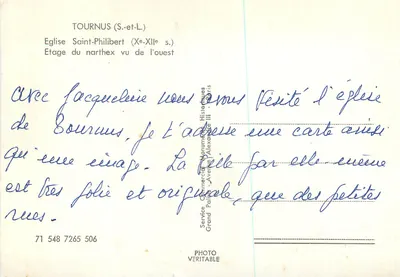 TOURNUS (S.-et-L.)
Eglise Saint-Philibert (Xe-XIIe s.)
Etage du narthex vu de l'ouest
avec Jacqueline nous avons visité l'église
de Tournus, je t'adresse une carte ainsi
qu'une image. La ville par elle-même
est très jolie et originale, que des petites
rues.
71 548 7265 506
Service Commercial Monuments Historiques
Grand Palais
PHOTO
VÉRITABLE